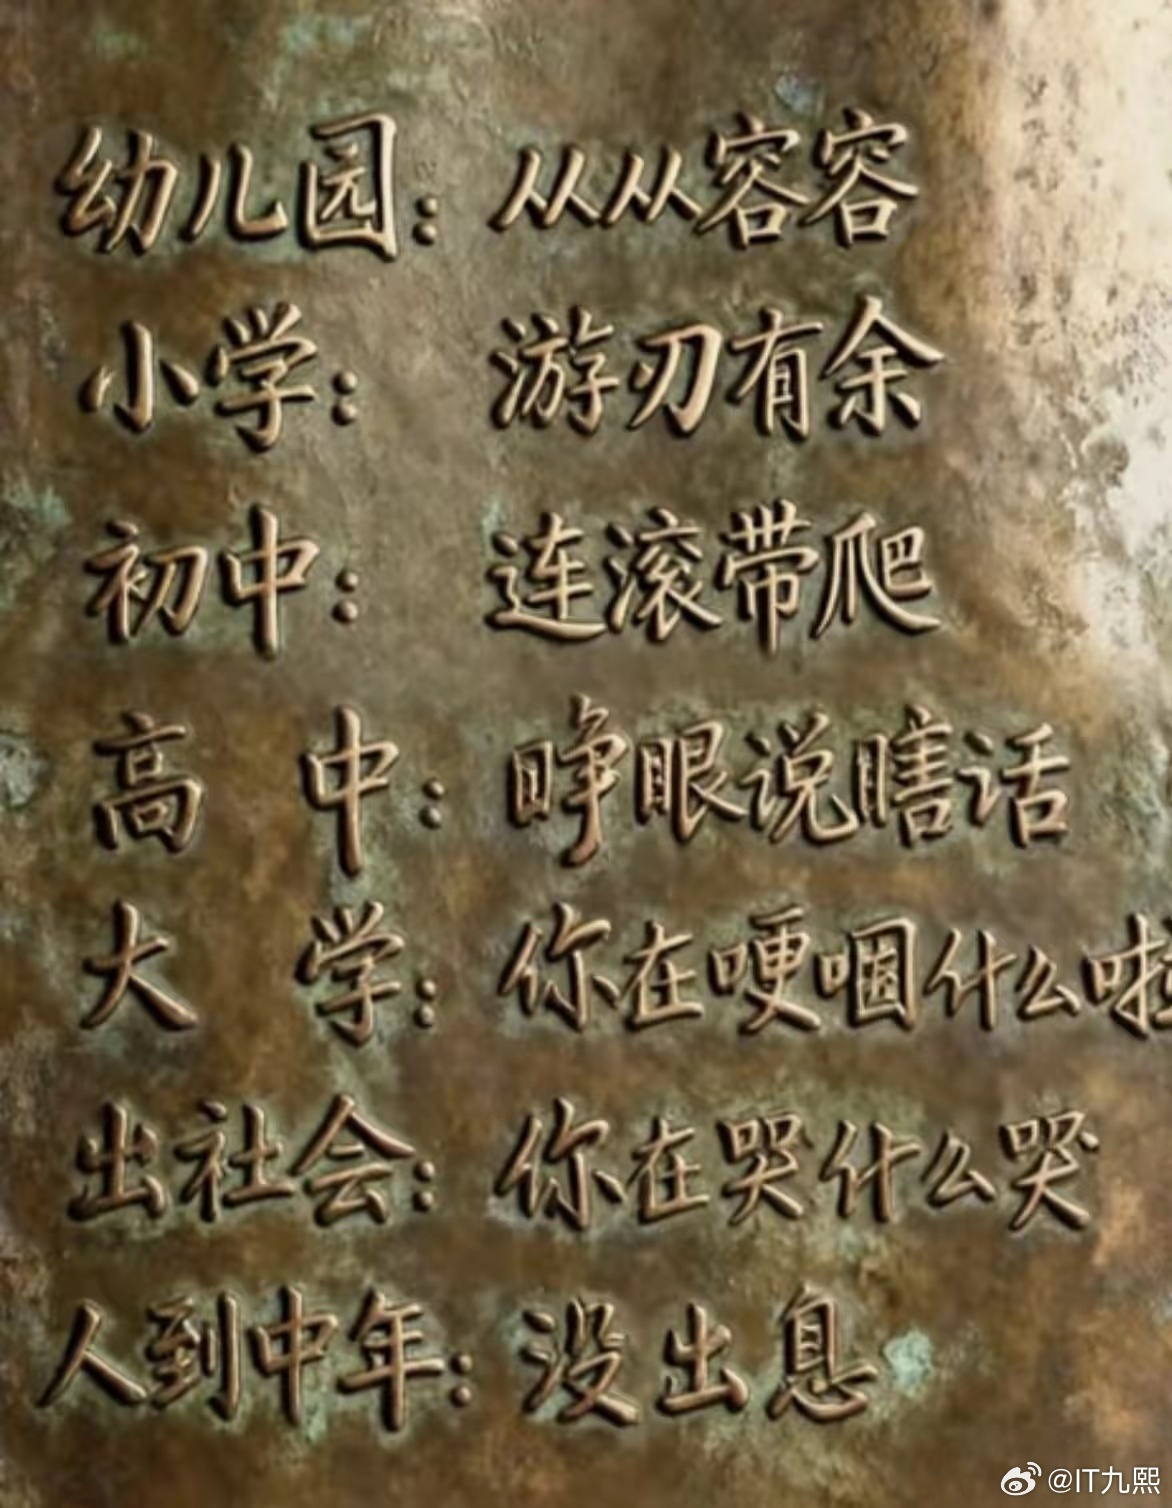 幼儿园：从从容容
小学：游刃有余
初中：连滚带爬
高中：睁眼说瞎话
大学：你在哽咽什么啦
出社会：你在哭什么哭
人到中年：没出息
@IT九熙